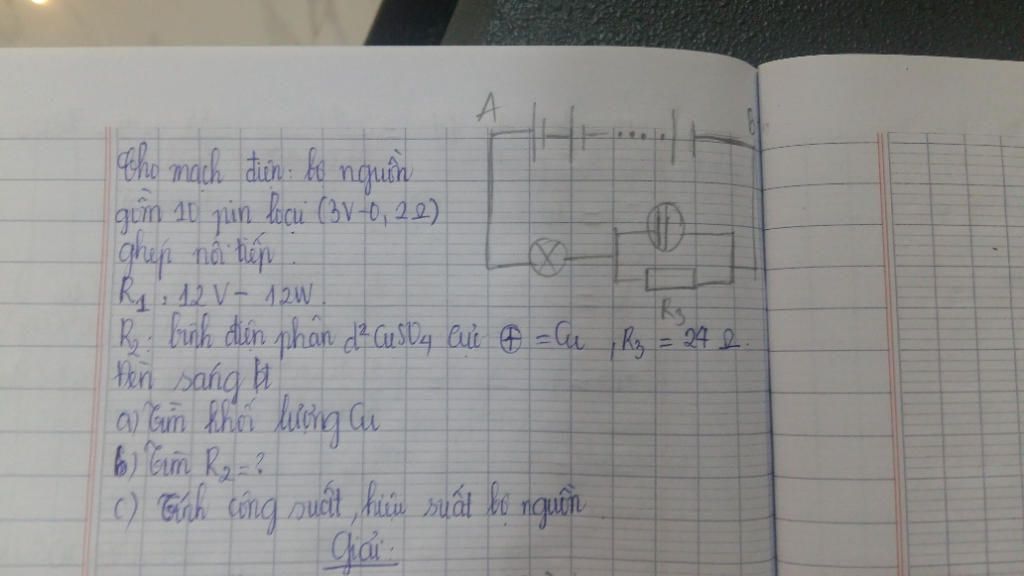 A B
Cho mạch điện: bộ nguồn
gồm 10 pin loại (3V-0,2Ω)
ghép nối tiếp.
R1: 12V - 12W.
R3
R2: bình điện phân d² CuSO4 cực ⊕ = Cu, R3 = 24 Ω.
Đèn sáng bt
a) Tìm khối lượng Cu
b) Tìm R2 = ?
c) Tính công suất, hiệu suất bộ nguồn
Giải: